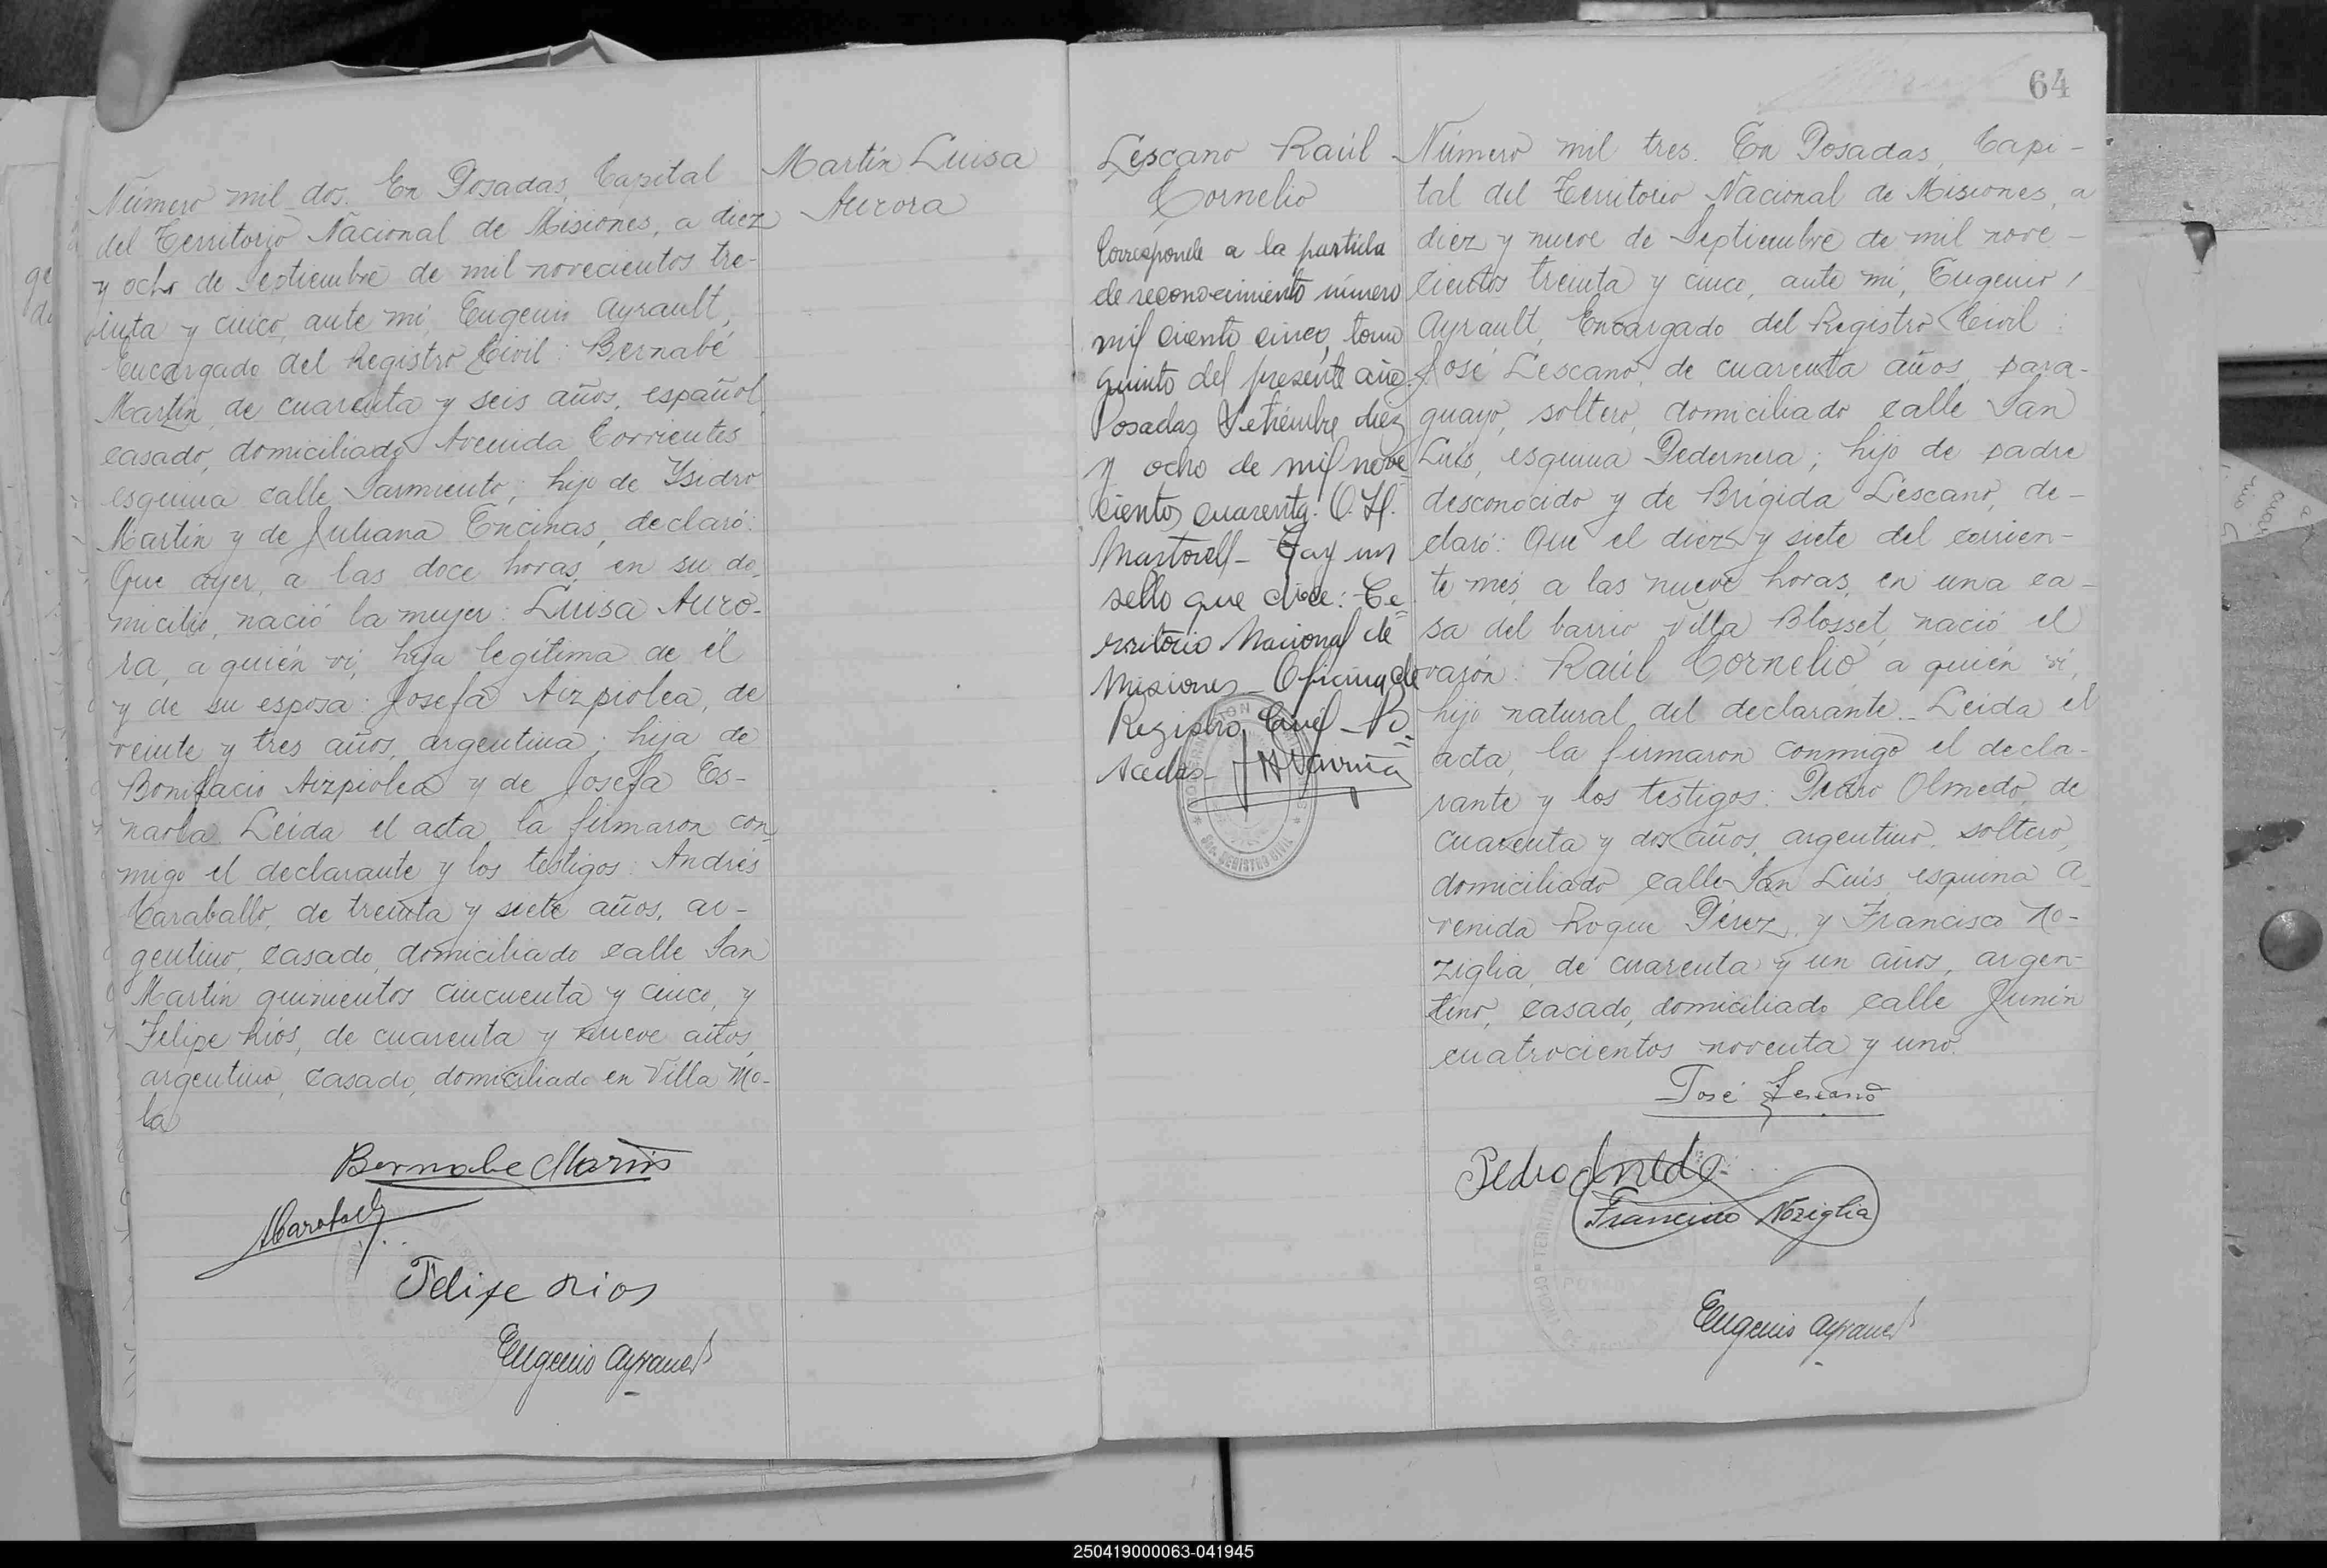 Número mil dos. En Posadas, Capital
del Territorio Nacional de Misiones, a diez
y ocho de Septiembre de mil novecientos tre-
inta y cinco, ante mi, Eugenio Ayrault,
Encargado del Registro Civil: Bernabé
Martín, de cuarenta y seis años, español,
casado, domiciliado Avenida Corrientes
esquina calle Sarmiento; hijo de Ysidro
Martín y de Juliana Encinas, declaró:
Que ayer, a las doce horas, en su do-
micilio, nació la mujer: Luisa Auro-
ra, a quién vi, hija legítima de él
y de su esposa: Josefa Aizpiolea, de
veinte y tres años, argentina; hija de
Bonifacio Aizpiolea y de Josefa Es-
narla. Leida el acta, la firmaron con-
migo el declarante y los testigos: Andrés
Caraballo, de treinta y siete años, ar-
gentino, casado, domiciliado calle San
Martín quinientos cincuenta y cinco, y
Felipe Ríos, de cuarenta y nueve años,
argentino, casado, domiciliado en Villa Mo-
la
Bernabe Martin
Felipe Rios
Eugenio Ayrault
Martín Luisa
Aurora
64
Lescano Raúl
Cornelio
Corresponde a la partida
de reconocimiento número
mil ciento cinco, tomo
quinto del presente año
Posadas Setiembre diez
y ocho de mil nove
cientos cuarenta. O. H.
Martorell - Hay un
sello que dice: Te=
rritorio Nacional de
Misiones - Oficina de
Registro Civil - Po=
sadas -
REGISTRO CIVIL
Número mil tres. En Posadas, Capi-
tal del Territorio Nacional de Misiones, a
diez y nueve de Septiembre de mil nove-
cientos treinta y cinco, ante mi, Eugenio
Ayrault, Encargado del Registro Civil:
José Lescano, de cuarenta años, para-
guayo, soltero, domiciliado calle San
Luis, esquina Pedernera; hijo de padre
desconocido y de Brígida Lescano, de-
claró: Que el diez y siete del corrien-
te mes, a las nueve horas, en una ca-
sa del barrio Villa Blosset, nació el
varón: Raúl Cornelio, a quién vi,
hijo natural del declarante. Leida el
acta, la firmaron conmigo el decla-
rante y los testigos: Pedro Olmedo, de
cuarenta y dos años, argentino, soltero,
domiciliado calle San Luis, esquina A-
venida Roque Pérez, y Francisco No-
ziglia, de cuarenta y un años, argen-
tino, casado, domiciliado calle Junín
cuatrocientos noventa y uno.
José Lescano
Pedro Olmedo
Francisco Noziglia
Eugenio Ayrault
250419000063-041945